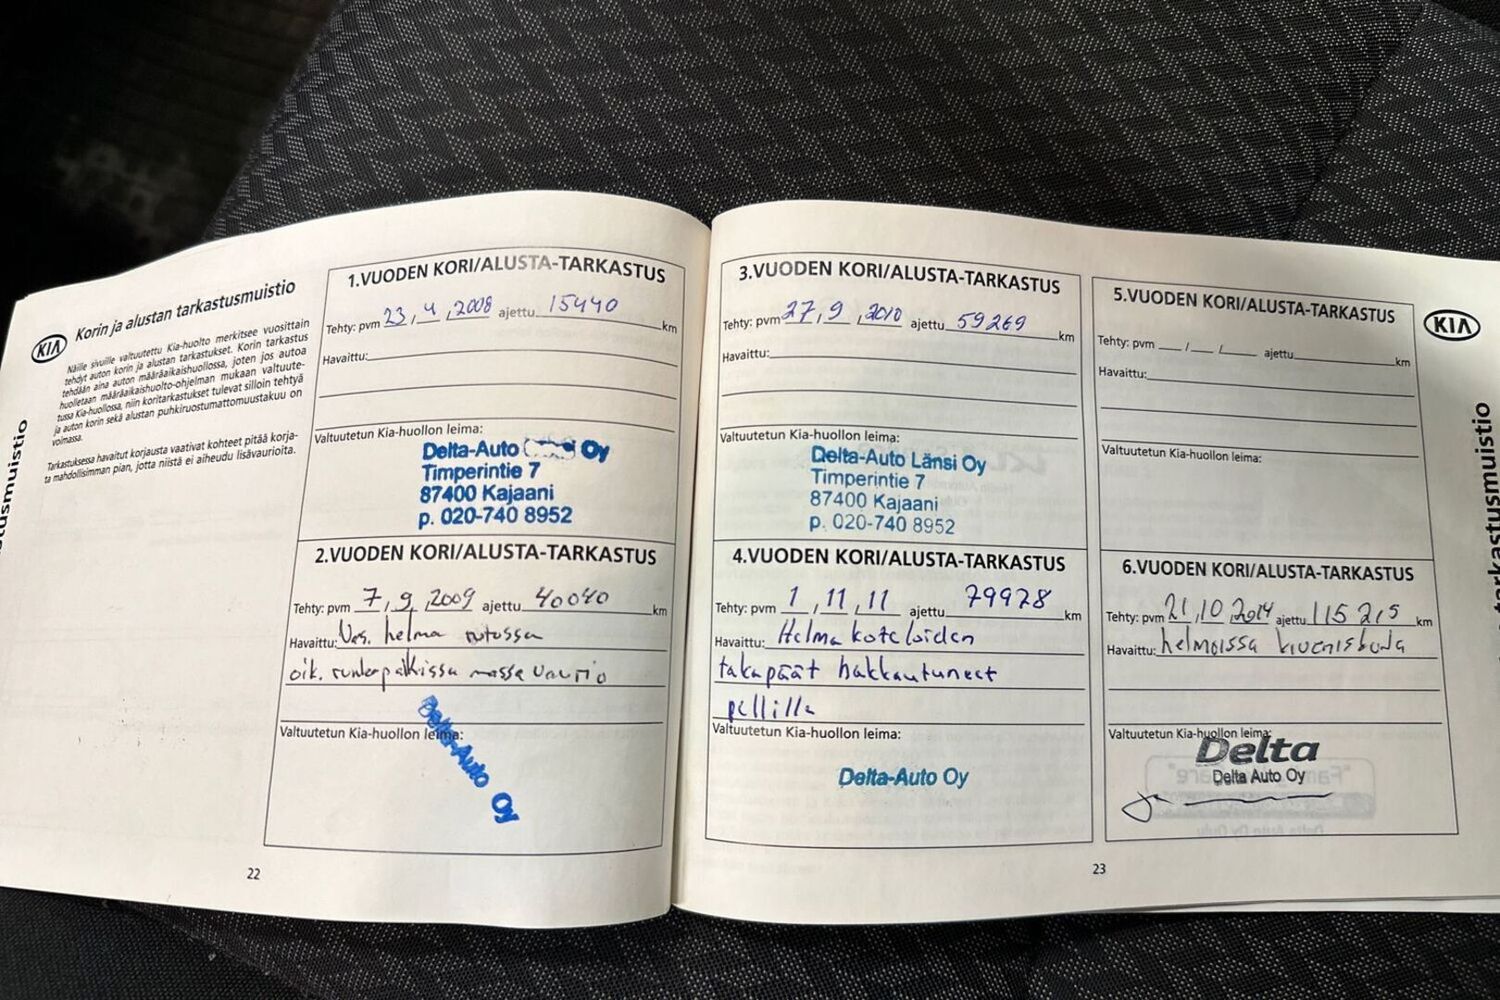 Korin ja alustan tarkastusmuistio
KIA
Näille sivuille valtuutettu Kia-huolto merkitsee vuosittain
tehdyt auton korin ja alustan tarkastukset. Korin tarkastus
tehdään aina auton määräaikaishuollossa, joten jos autoa
huolletaan määräaikaishuolto-ohjelman mukaan valtuute-
tussa Kia-huollossa, niin koritarkastukset tulevat silloin tehtyä
ja auton korin sekä alustan puhkiruostumattomuustakuu on
voimassa.
Tarkastuksessa havaitut korjausta vaativat kohteet pitää korja-
ta mahdollisimman pian, jotta niistä ei aiheudu lisävaurioita.
1.VUODEN KORI/ALUSTA-TARKASTUS
Tehty: pvm 23,4,2008 ajettu 15440 km
Havaittu:
Valtuutetun Kia-huollon leima:
Delta-Auto Oy
Timperintie 7
87400 Kajaani
p. 020-740 8952
2.VUODEN KORI/ALUSTA-TARKASTUS
Tehty: pvm 7,9,2009 ajettu 40040 km
Havaittu: Vas. helma rutussa
oik. runkopalkissa massa vaurio
Valtuutetun Kia-huollon leima:
Delta-Auto Oy
22
3.VUODEN KORI/ALUSTA-TARKASTUS
Tehty: pvm 27,9,2010 ajettu 59269 km
Havaittu:
Valtuutetun Kia-huollon leima:
Delta-Auto Länsi Oy
Timperintie 7
87400 Kajaani
p. 020-740 8952
4.VUODEN KORI/ALUSTA-TARKASTUS
Tehty: pvm 1,11,11 ajettu 79978 km
Havaittu: Helmakoteloiden
takapäät hakkautuneet
pellillä
Valtuutetun Kia-huollon leima:
Delta-Auto Oy
5.VUODEN KORI/ALUSTA-TARKASTUS
Tehty: pvm / / ajettu km
Havaittu:
Valtuutetun Kia-huollon leima:
6.VUODEN KORI/ALUSTA-TARKASTUS
Tehty: pvm 21,10,2014 ajettu 115215 km
Havaittu: helmoissa kiveniskuja
Valtuutetun Kia-huollon leima:
Delta
Delta Auto Oy
23
KIA
tarkastusmuistio